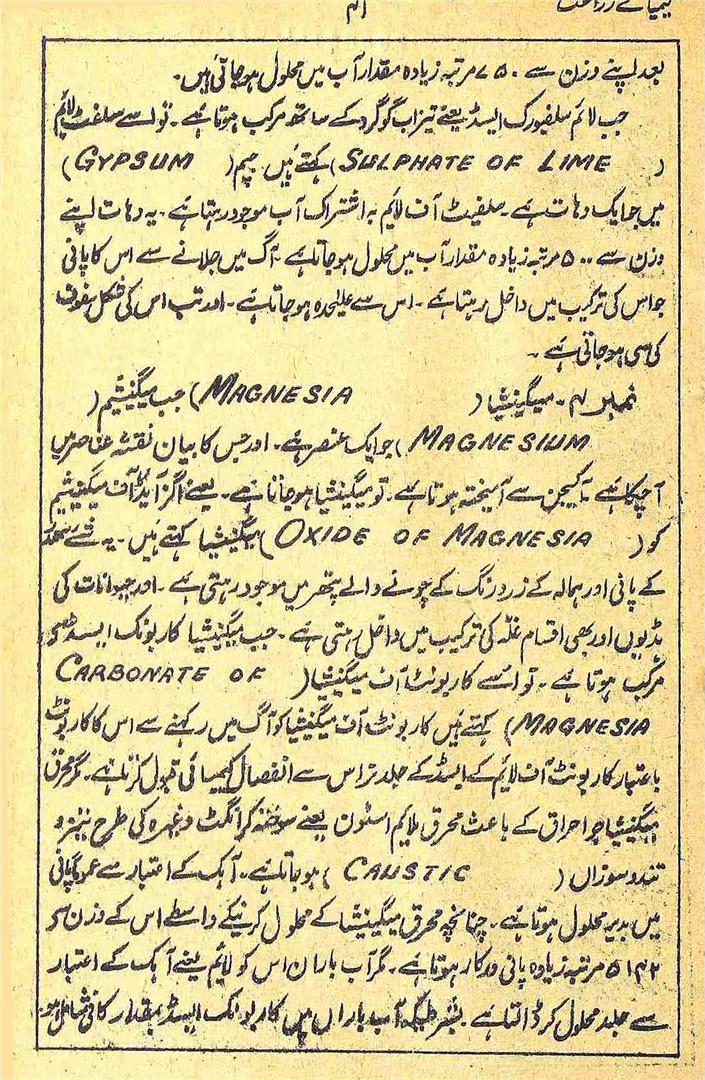 کیمیائے زراعت
۴۱
بعد اپنے وزن سے ۷۵۰ مرتبہ زیادہ مقدار آب میں محلول ہوجاتی ہیں۔
جب لائم سلفیورک ایسڈ یعنے تیزاب گوگرد کے ساتھ مرکب ہوتا ہے۔ تو اسے سلفٹ لائم
(SULPHATE OF LIME) کہتے ہیں جپسم (GYPSUM)
میں جو ایک دہات ہے۔ سلفیٹ آف لائم بہ اشتراک آب موجود رہتا ہے۔ یہ دہات اپنے
وزن سے ۵۰۰ مرتبہ زیادہ مقدار آب میں محلول ہوجاتا ہے۔ آگ میں جلانے سے اس کا پانی
جو اس کی ترکیب میں داخل رہتا ہے۔ اس سے علیٰحدہ ہوجاتا ہے۔ اور تب اس کی شکل سفوف
کی سی ہوجاتی ہے۔
نمبر ۴۔ میگنیشیا (MAGNESIA) جب میگنیشیم (
MAGNESIUM) جو ایک عنصر ہے۔ اور جس کا بیان نقشہ عناصر میں
آچکا ہے۔ آکیجن سے آمیختہ ہوتا ہے۔ تو میگنیشیا ہوجاتا ہے۔ یعنے اگزائیڈ آف میگنیشیم
کو (OXIDE OF MAGNESIA) میگنیشیا کہتے ہیں۔ یہ شے سمندر
کے پانی اور ہمالہ کے زرد رنگ کے چونے والے پتھر میں موجود رہتی ہے۔ اور حیوانات کی
ہڈیوں اور بھی اقسام غلہ کی ترکیب میں داخل رہتی ہے۔ جب میگنیشیا کاربونک ایسڈ سے
مرکب ہوتا ہے۔ تو اسے کاربونٹ آف میگنیشیا (CARBONATE OF
MAGNESIA) کہتے ہیں کاربونٹ آف میگنیشیا کو آگ میں رکھنے سے اس کا کاربونٹ
باعتبار کاربونٹ آف لائم کے ایسڈ کے جلد تر اس سے انفصال کیمیائی قبول کرتا ہے۔ مگر محرق
میگنیشیا جو احراق کے باعث محرق لائم اسٹون یعنے سوختہ کرانکٹ وغیرہ کی طرح تیز و
تند و سوزاں (CAUSTIC) ہوجاتا ہے۔ آہک کے اعتبار سے عموماً پانی
میں بدیر محلول ہوتا ہے۔ چنانچہ محرق میگنیشیا کے محلول کرنیکے واسطے اس کے وزن سے
۵۱۴۲ مرتبہ زیادہ پانی درکار ہوتا ہے۔ مگر آب باران اس کو لائم یعنے آہک کے اعتبار
سے جلد محلول کر ڈالتا ہے۔ بشرطیکہ آب باراں میں کاربونک ایسڈ بمقدار کافی شامل ہو۔